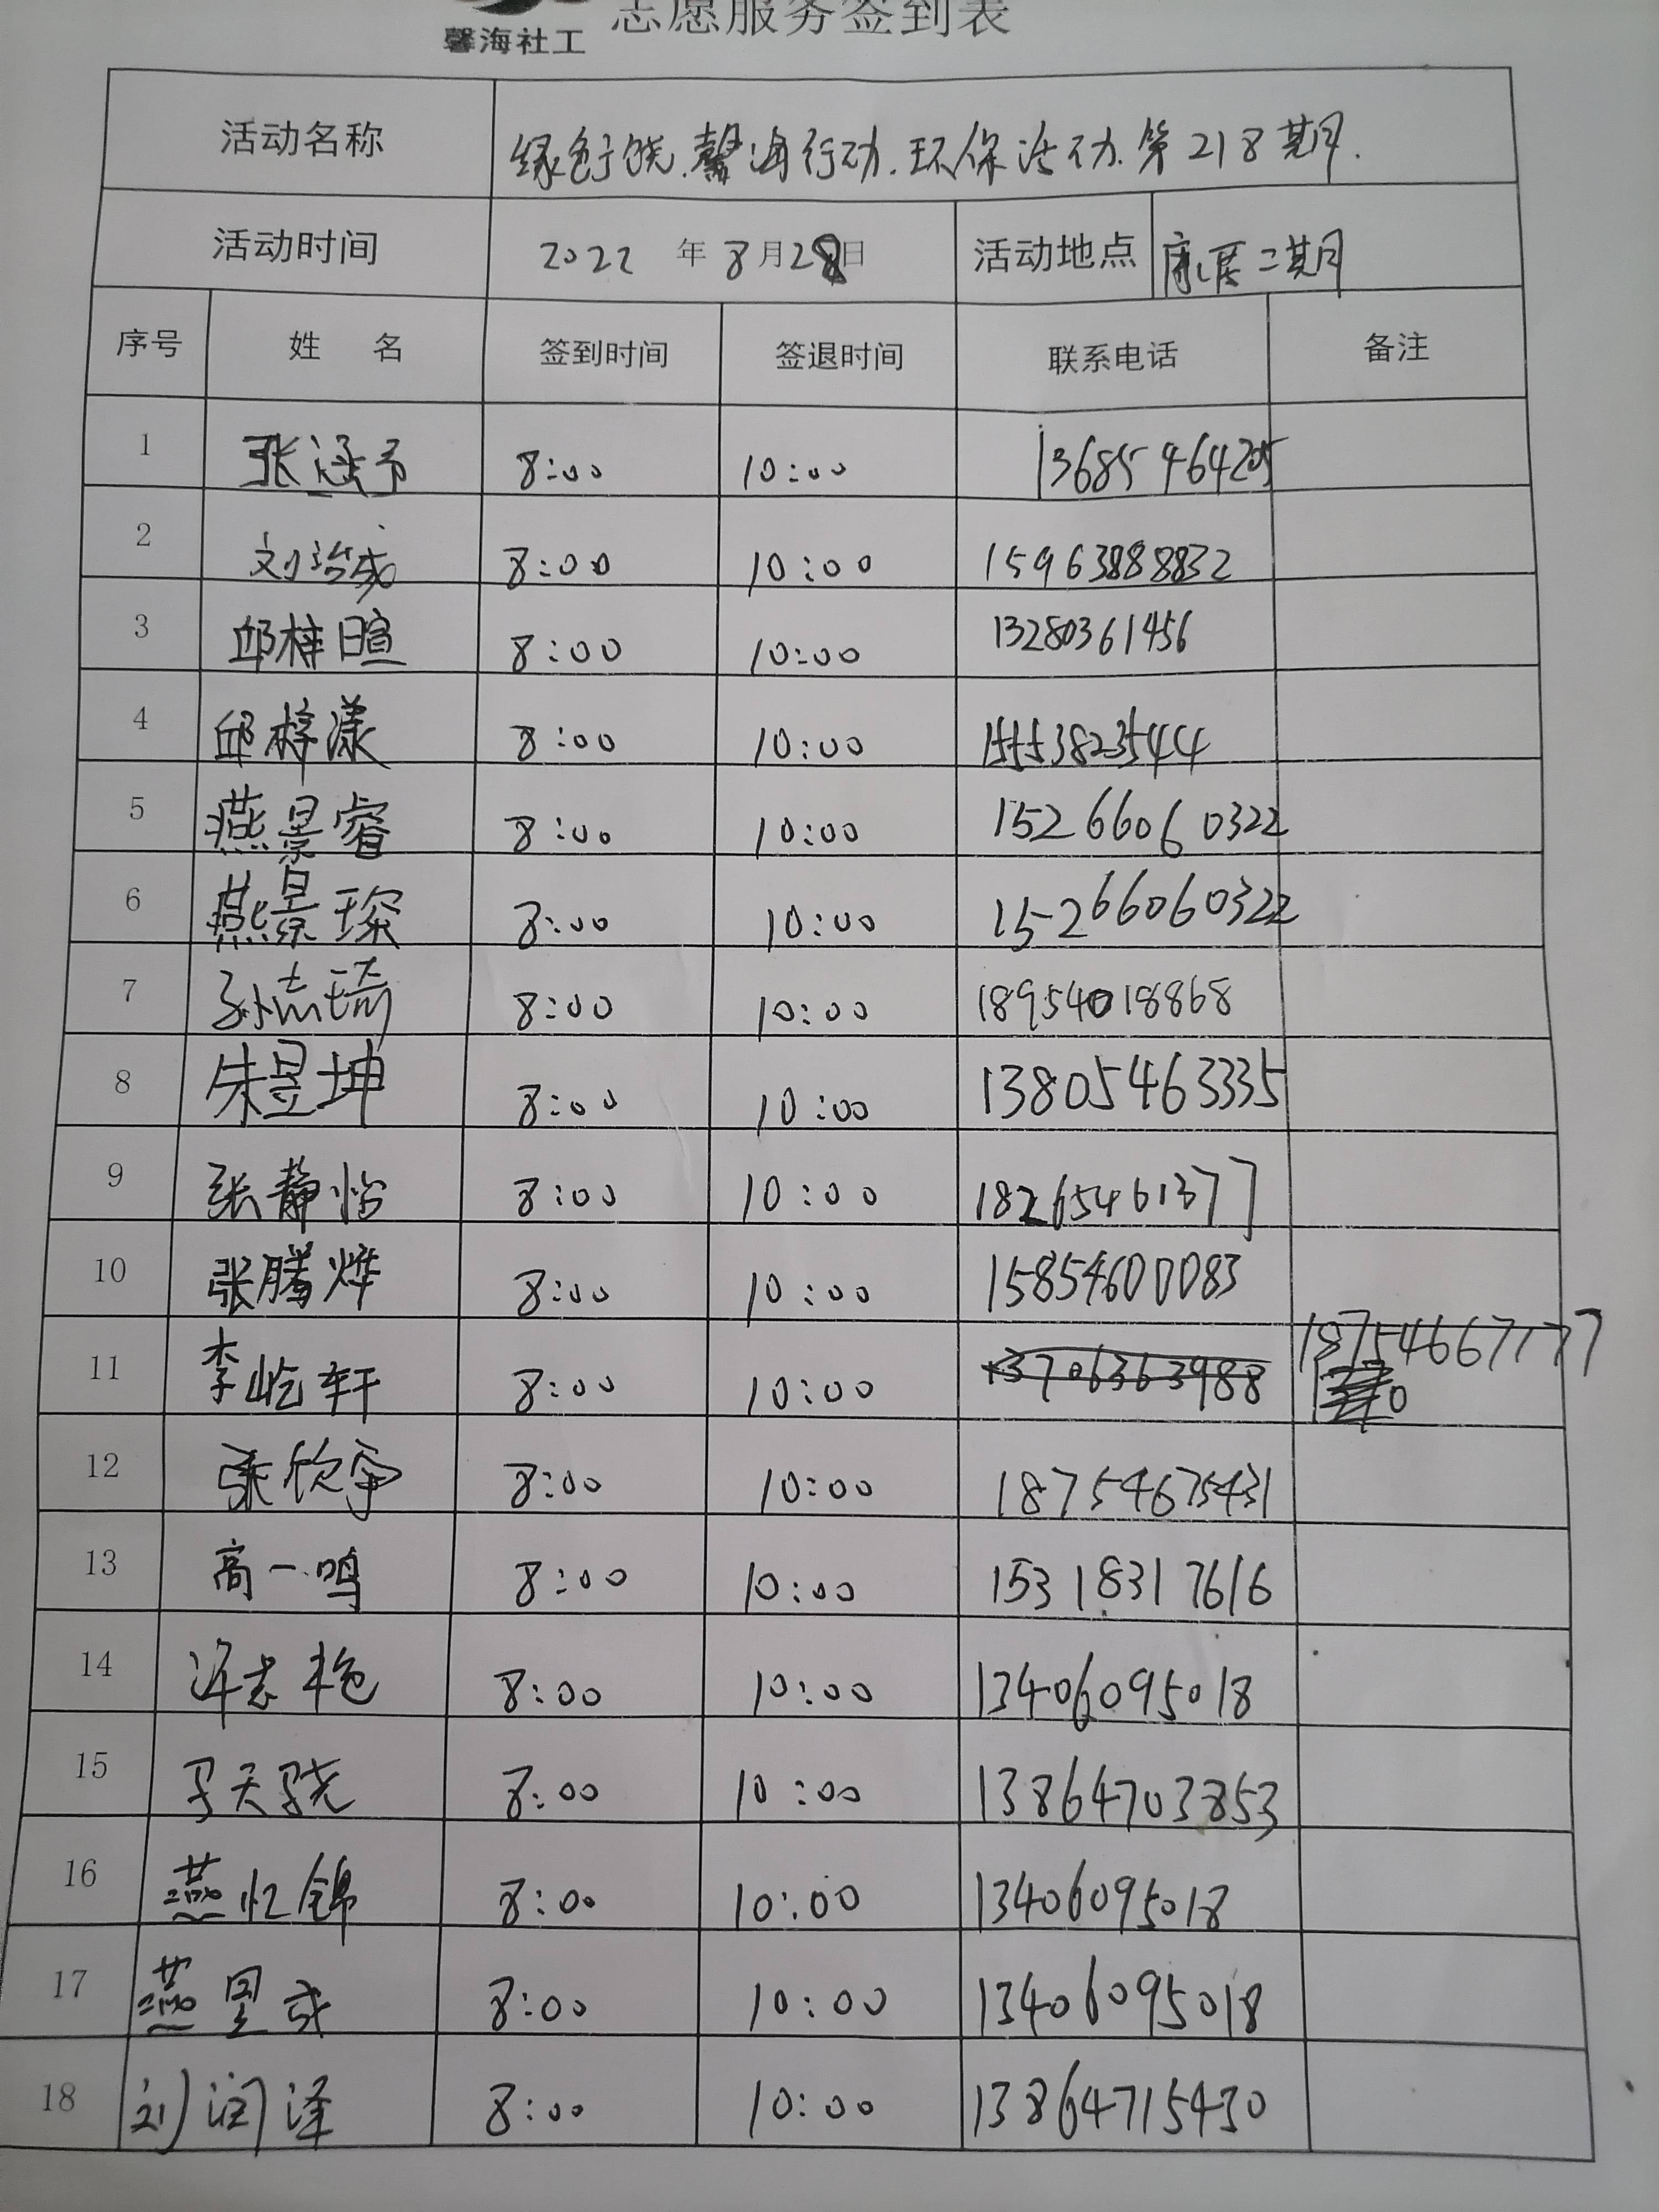 馨海社工 志愿服务签到表
活动名称 绿色广饶.馨海行动.环保活动.第218期.
活动时间 2022 年 8 月 28 日 活动地点 康居二期
序号 姓 名 签到时间 签退时间 联系电话 备注
1 张涵予 8:00 10:00 13685464205
2 刘治成 8:00 10:00 15963888832
3 邱梓暄 8:00 10:00 13280361456
4 邱梓漾 8:00 10:00 15553823544
5 燕景睿 8:00 10:00 15266060322
6 燕景琛 8:00 10:00 15266060322
7 孙志琦 8:00 10:00 18954018868
8 朱昱坤 8:00 10:00 13805463335
9 张静怡 8:00 10:00 18265461377
10 张腾烨 8:00 10:00 15854600083
11 李屹轩 8:00 10:00 13706363988 18754667177
12 张欣 8:00 10:00 18754675431
13 高一鸣 8:00 10:00 15318317616
14 志艳 8:00 10:00 13406095018
15 马天骁 8:00 10:00 13864703853
16 燕忆锦 8:00 10:00 13406095018
17 燕昱成 8:00 10:00 13406095018
18 刘润泽 8:00 10:00 13864715430